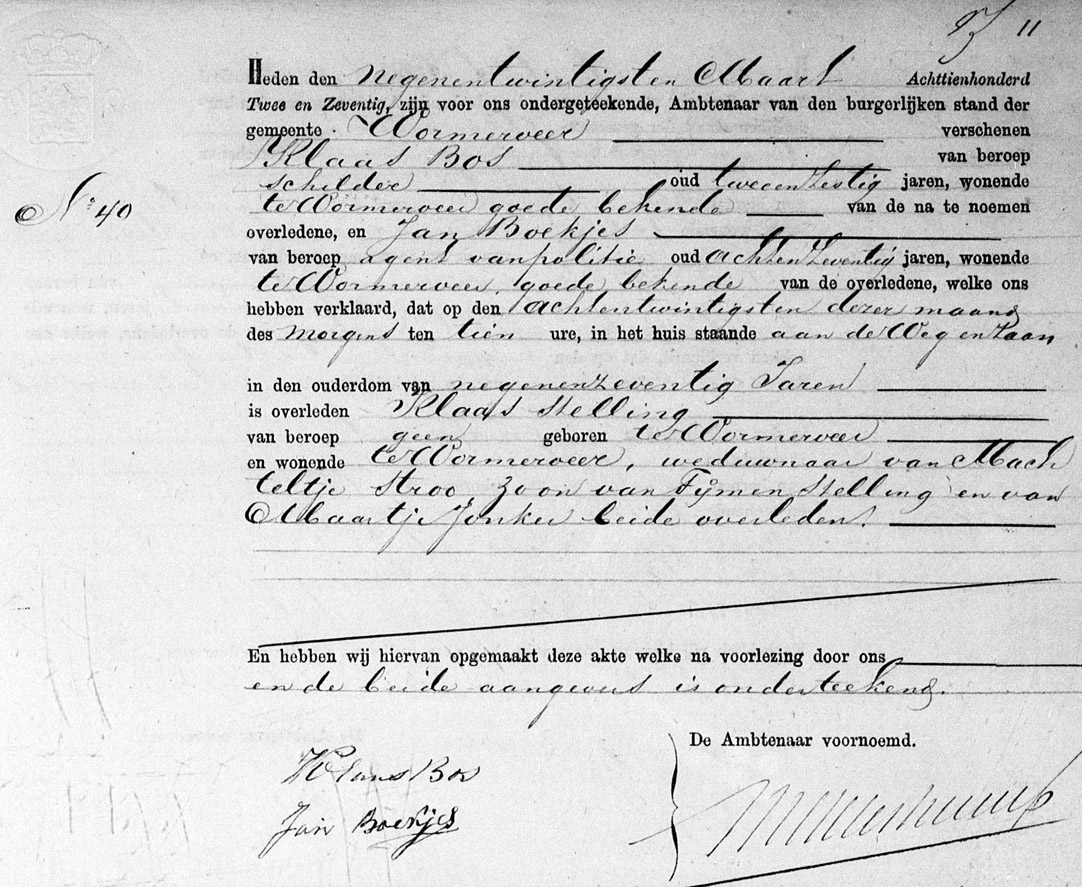 11
Heden den negenentwintigsten Maart Achttienhonderd
Twee en Zeventig, zijn voor ons ondergeteekende, Ambtenaar van den burgerlijken stand der
gemeente Wormerveer verschenen
Klaas Bos van beroep
schilder oud tweeenzestig jaren, wonende
No 40
te Wormerveer goede bekende van de na te noemen
overledene, en Jan Boekjes
van beroep agent van politie oud achtenzeventig jaren, wonende
te Wormerveer, goede bekende van de overledene, welke ons
hebben verklaard, dat op den achtentwintigsten dezer maand
des morgens ten tien ure, in het huis staande aan de Weg en Laan
in den ouderdom van negenenzeventig Jaren
is overleden Klaas Stelling
van beroep geen geboren te Wormerveer
en wonende te Wormerveer, weduwnaar van Mach
teltje Stroo, zoon van Tijmen Stelling en van
Maartje Jonker beide overleden.
En hebben wij hiervan opgemaakt deze akte welke na voorlezing door ons
en de beide aangevers is onderteekend.
De Ambtenaar voornoemd.
Klaas Bos
Jan Boekjes